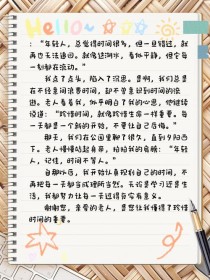 Hello~
：“年轻人，总觉得时间很多，但一旦错过，就
再也无法追回。就像这湖水，看似平静，但每
一刻都在流动。”
我点了点头，陷入了沉思。是啊，我们总是
在不经意间浪费时间，却不曾意识到时间的流
逝。老人看着我，似乎明白了我的心思，他继续
说道：“珍惜时间，就像珍惜生命一样重要。每
一天都是一个新的开始，不要让自己后悔。”
那天，我们在公园里聊了很久，直到夕阳西
下。老人慢慢站起身来，拍拍我的肩膀：“年轻
人，记住，时间不等人。”
自那以后，我开始认真规划自己的时间，不
再把每一天都当成理所当然。无论是学习还是生
活，我都努力让每一天过得有意义。
谢谢您，亲爱的老人，是您让我懂得了珍惜
时间的重要。